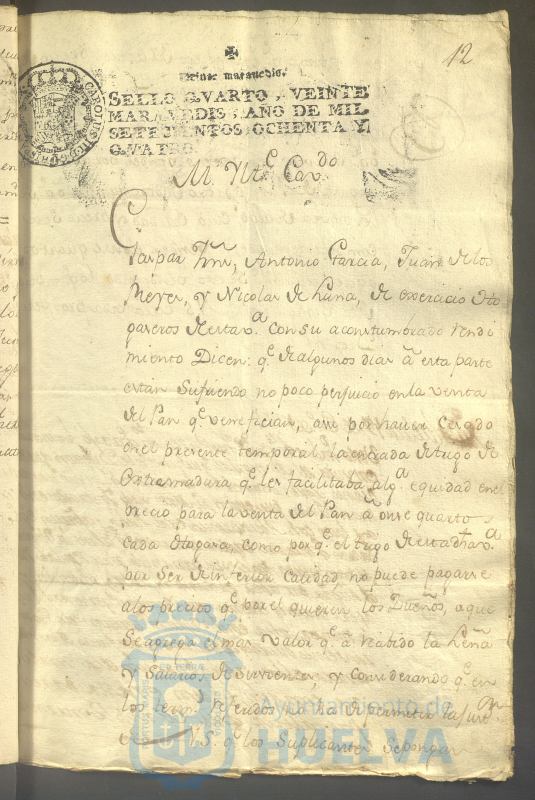 12
Veinte maravedis.
SELLO QVARTO, VEINTE
MARAVEDIS, AÑO DE MIL
SETECIENTOS OCHENTA Y
QVATRO.
M. Ylte. Cavdo.
Gaspar Frnz, Antonio Garcia, Juan de los
Reyes, y Nicolas de Luna, de exercicio Ho
gaseros de esta va. con su acostumbrado rendi
miento Dicen: qe. de algunos dias â esta parte
estan sufriendo no poco perjuicio en la venta
del Pan qe. venefician, asi por haver cesado
en el presente temporal la entrada de trigo de
Extremadura qe. les facilitaba alga. equidad en el
precio para la venta del Pan â onse quartos
cada Hogaza, como por qe. el trigo de esta dha va.
por ser de inferior calidad no puede pagarse
a los precios qe. por el quieren los Dueños, a que
se agrega el mas valor qe. â recibido la Leña
y Salarios de Sirvientes, y considerando qe. en
los terms. referidos no ha de permitir la
V.S. qe. los Suplicantes se pongan
Ayuntamiento de
HUELVA